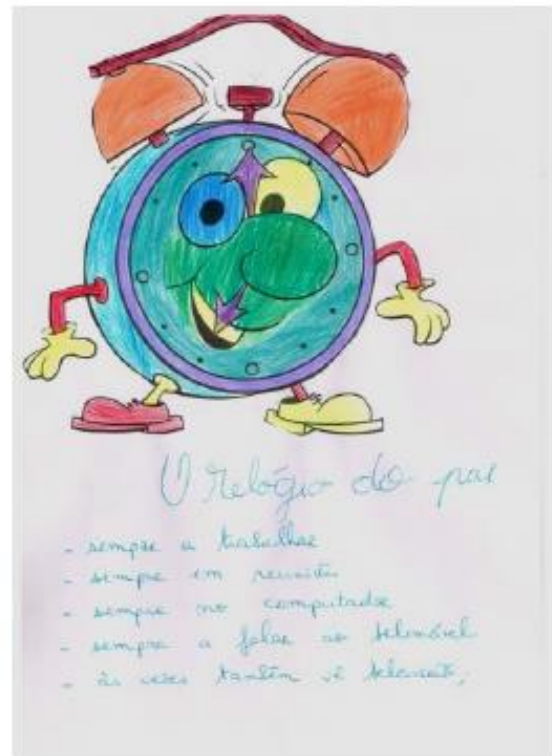 O relógio do pai
- sempre a trabalhar
- sempre em reunião
- sempre no computador
- sempre a falar ao telemóvel
- às vezes também vê televisão;